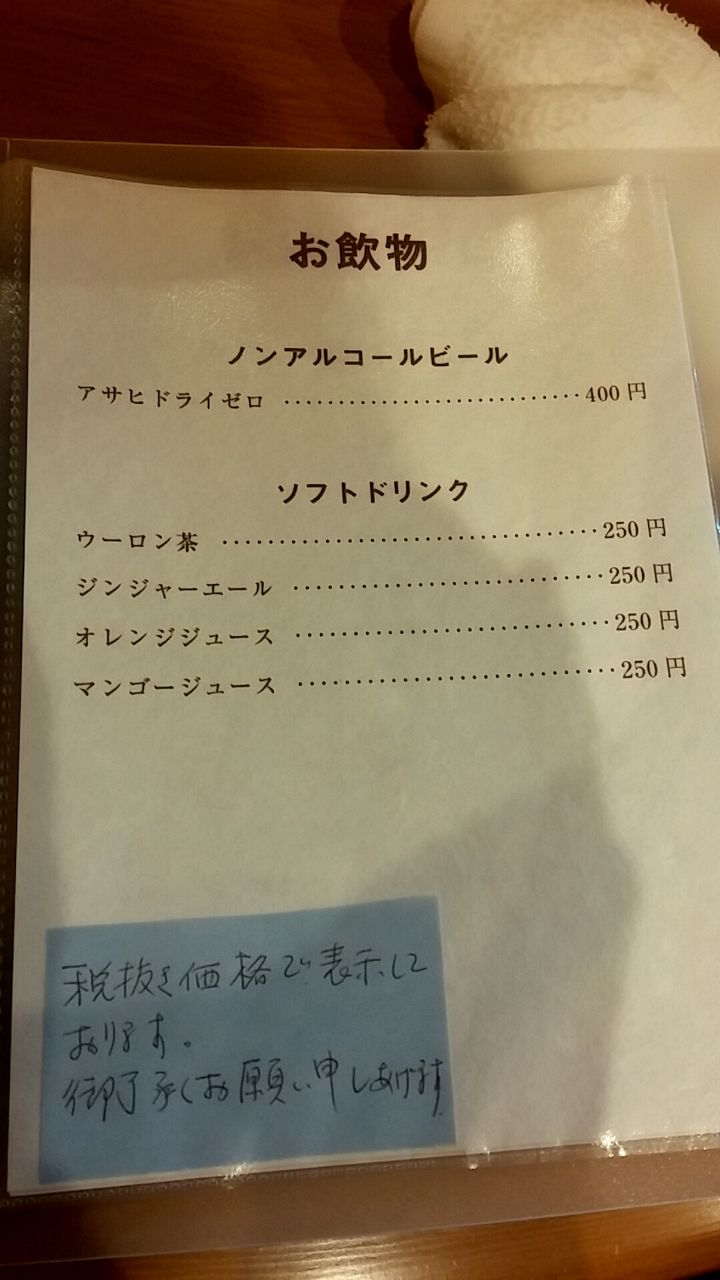 お飲物
ノンアルコールビール
アサヒドライゼロ ‥‥‥‥‥‥‥‥‥‥‥‥‥ 400 円
ソフトドリンク
ウーロン茶 ‥‥‥‥‥‥‥‥‥‥‥‥‥‥‥‥ 250 円
ジンジャーエール ‥‥‥‥‥‥‥‥‥‥‥‥‥ 250 円
オレンジジュース ‥‥‥‥‥‥‥‥‥‥‥‥‥ 250 円
マンゴージュース ‥‥‥‥‥‥‥‥‥‥‥‥‥ 250 円
税抜き価格で表示して
おります。
御了承くお願い申しあげます